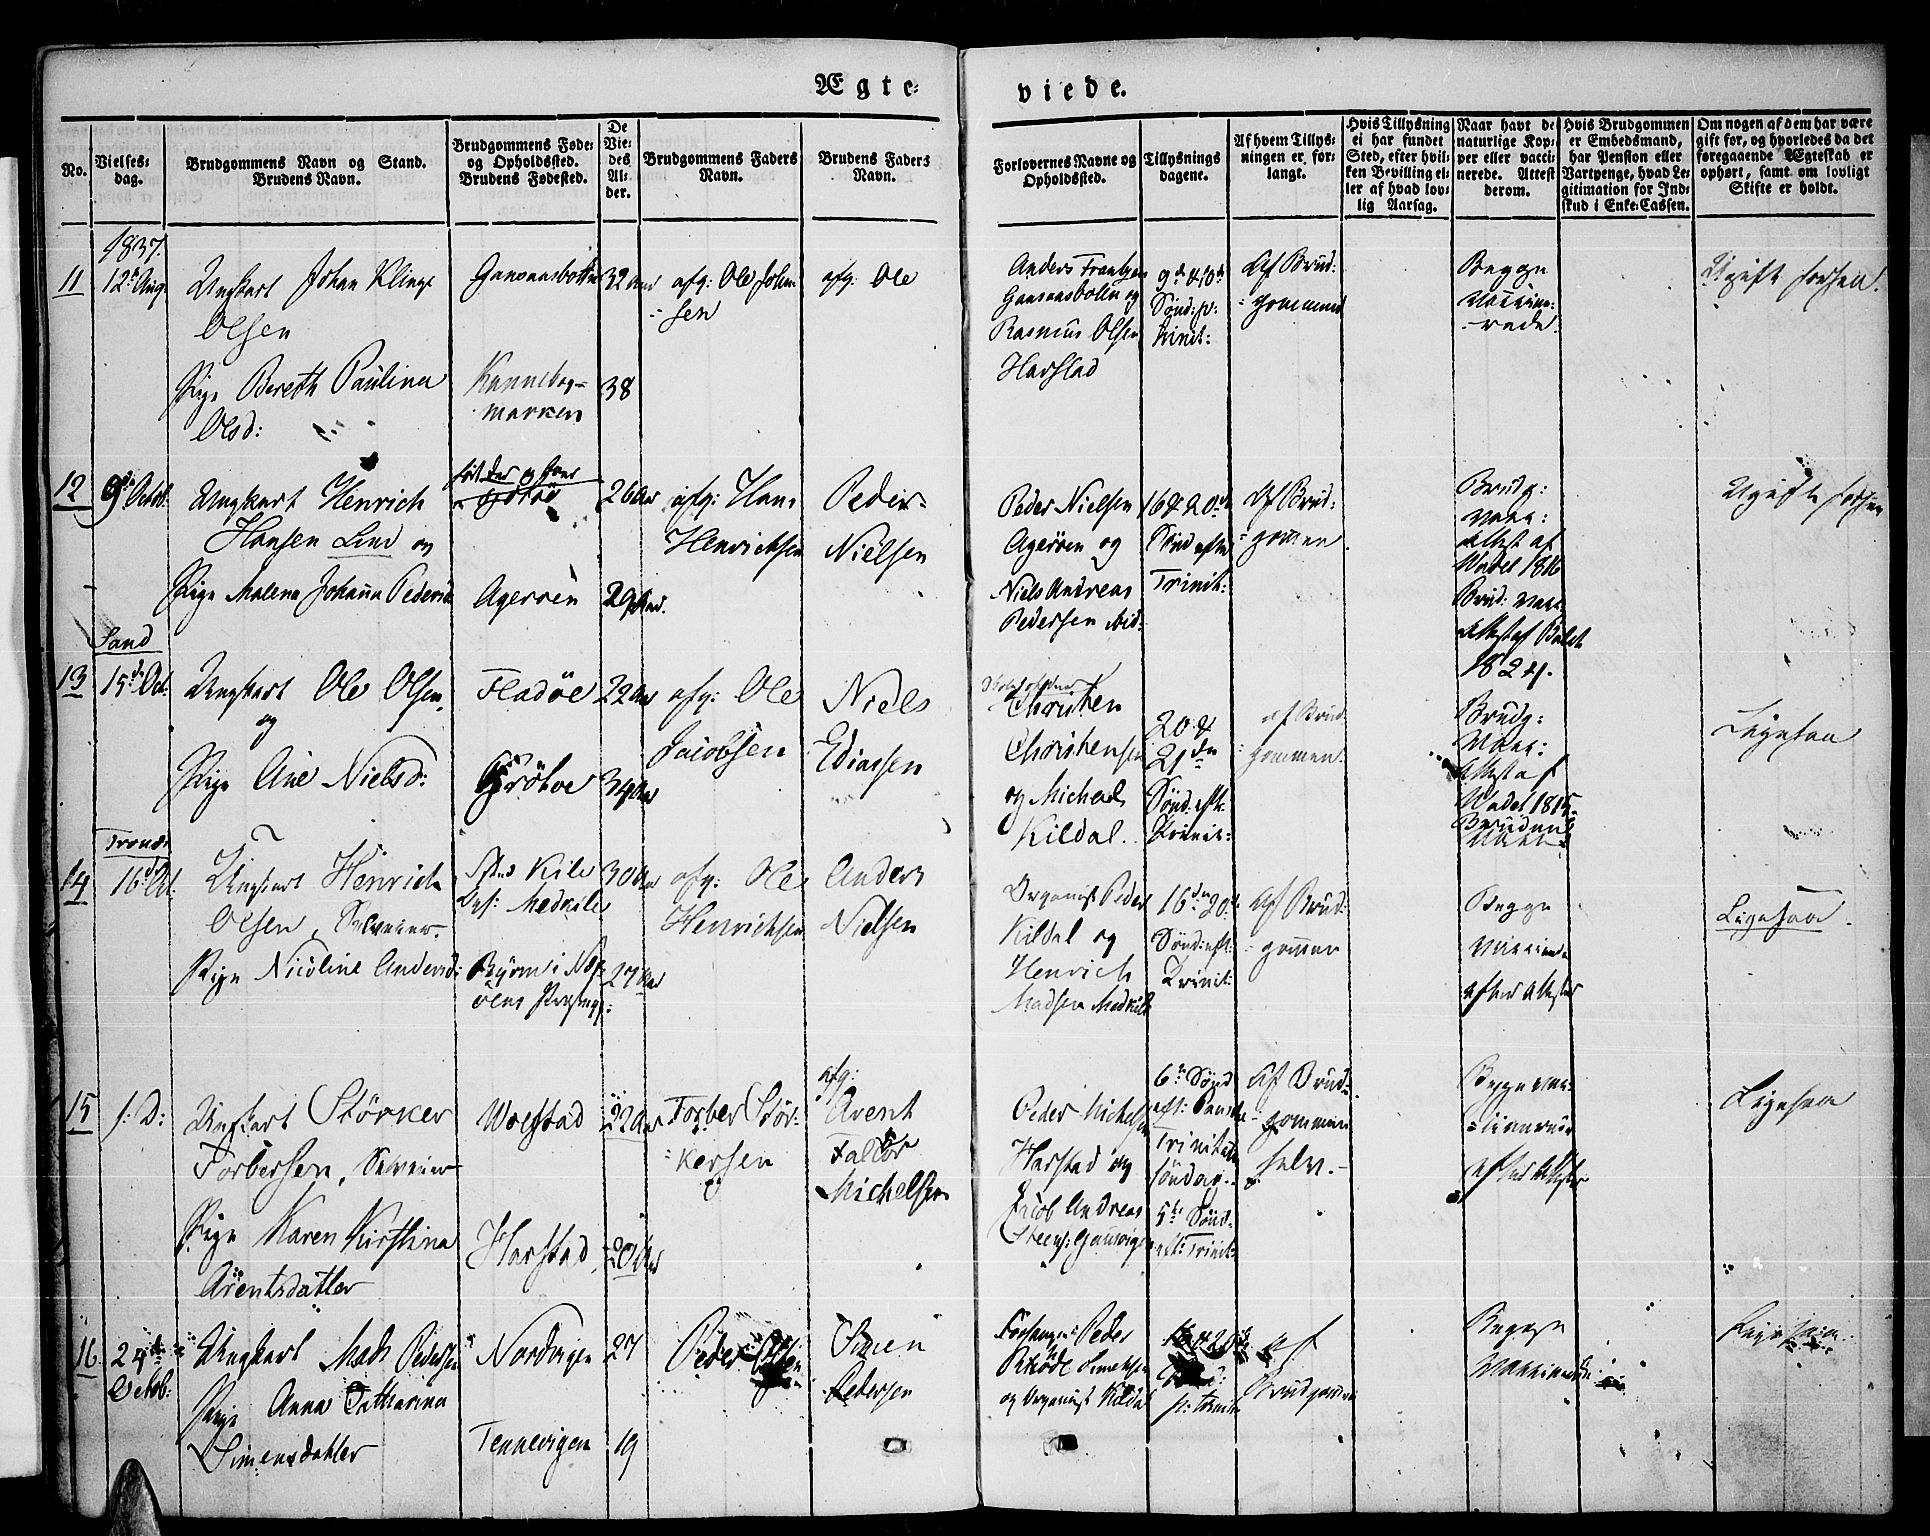 Ægte: viede.
No.
Vielses:
dag.
Brudgommens Navn og Stand.
Brudens Navn.
Brudgommens Føde:
og Opholdssted.
Brudens Fødested.
De
Vie:
des
Al:
der.
Brudgommens Faders
Navn.
Brudens Faders
Navn.
Forlovernes Navne og
Opholdssted.
Tillysnings
dagene.
Af hvem Tillys:
ningen er for:
langt.
Hvis Tillysning
ei har fundet
Sted, efter hvil:
ken Bevilling el:
ler af hvad lov:
lig Aarsag.
Naar havt de
naturlige Kop:
per eller vacci:
nerede. Attest
derom.
Hvis Brudgommen
er Embedsmand,
har Pension eller
Vartpenge, hvad Le:
gitimation for Ind:
skud i Enke:Cassen.
Om nogen af dem har være
gift før, og hvorledes da det
foregaaende Ægteskab er
ophørt, samt om lovligt
Skifte er holdt.
1837.
11
12te Aug.
Ungkarl Johan Klinge
Olsen
Pige Bereth Paulina
Olsd:
Gansaasbotten
Kannebog=
marken
32 Aar
38
afg: Ole John=
sen
afg: Ole
Anders Frantzen
Gansaasbotten og
Rasmus Olsen
Harstad
9de & 10de
Sønd: p:
Trinit:
Af Brud:
gommen
Begge
vaccine:
rede.
Ugifte forhen.
12
9de Octob.
Ungkarl Henrich
Hansen Lind og
Pige Malena Johanna Pedersd
Agerøen
26 Aar
29 Aar.
afg: Hans
Henrichsen
Peder
Nielsen
Peder Nielsen
Agerøen og
Niels Andreas
Pedersen ibid:
16 & 20de
Sønd efter
Trinit:
Af Brud:
gommen
Brudg:
Vacc:
Attest af
Wadel 1816
Brud: vacc
Attest af
1824.
Ugifte forhen
Sand
13
15de Oct.
Ungkarl Ole Olsen,
og
Pige Ane Nielsd:
Fladøe
Grötøe
22 Aar
34 Aar
afg: Ole
Jacobsen
Niels
Ediassen
Christen
Christensen
og Michael
Kildal.
20 &
21de
Sønd: eft.
Trinit:
af Brud
gommen.
Brudg:
Vacc:
Attest af
Wadel 1815
Brudens
Vacc.
Ligesaa
Tronæs
14
16de Oct.
Ungkarl Henrich
Olsen, Selveier
Pige Nicoline Andersd:
Kile
Medkile
30 Aar
27 Aar
afg: Ole
Henrichsen
Anders
Nielsen
Organist Peder
Kildal og
Henrich
Madsen Medkile
16de 20de
Sønd: eft:
Trinit:
Af Brud:
gommen
Begge
vaccined
efter Attester
Ligesaa.
15
s: D:
Ungkarl Störker
Torbersen, Selveier
Pige Karen Kirstina
Arentsdatter
Woldstad
Harstad
22 Aar
20 Aar
Torber Stör=
kersen
afg:
Arent
Falkor
Michelsen
Peder Michelsen
Harstad og
Jacob Andreas
Steens: Gausvigen
6te Sønd
eft:
Trinitatis
søndag.
5te Sønd:
eft: Trinit:
Af Brud=
gommen
selv.
Begge vac=
cinerede
efter Attester
Ligesaa
16.
24de
Octob:
Ungkarl Mads Pedersen
Pige Anna Catharina
Simensdatter
Nordvigen
Tennevigen
27
19
Peder
Simen
Pedersen
Peder
og Organist Kildal
af
Brudgommen
Begge
vaccinerede
Ligesaa.